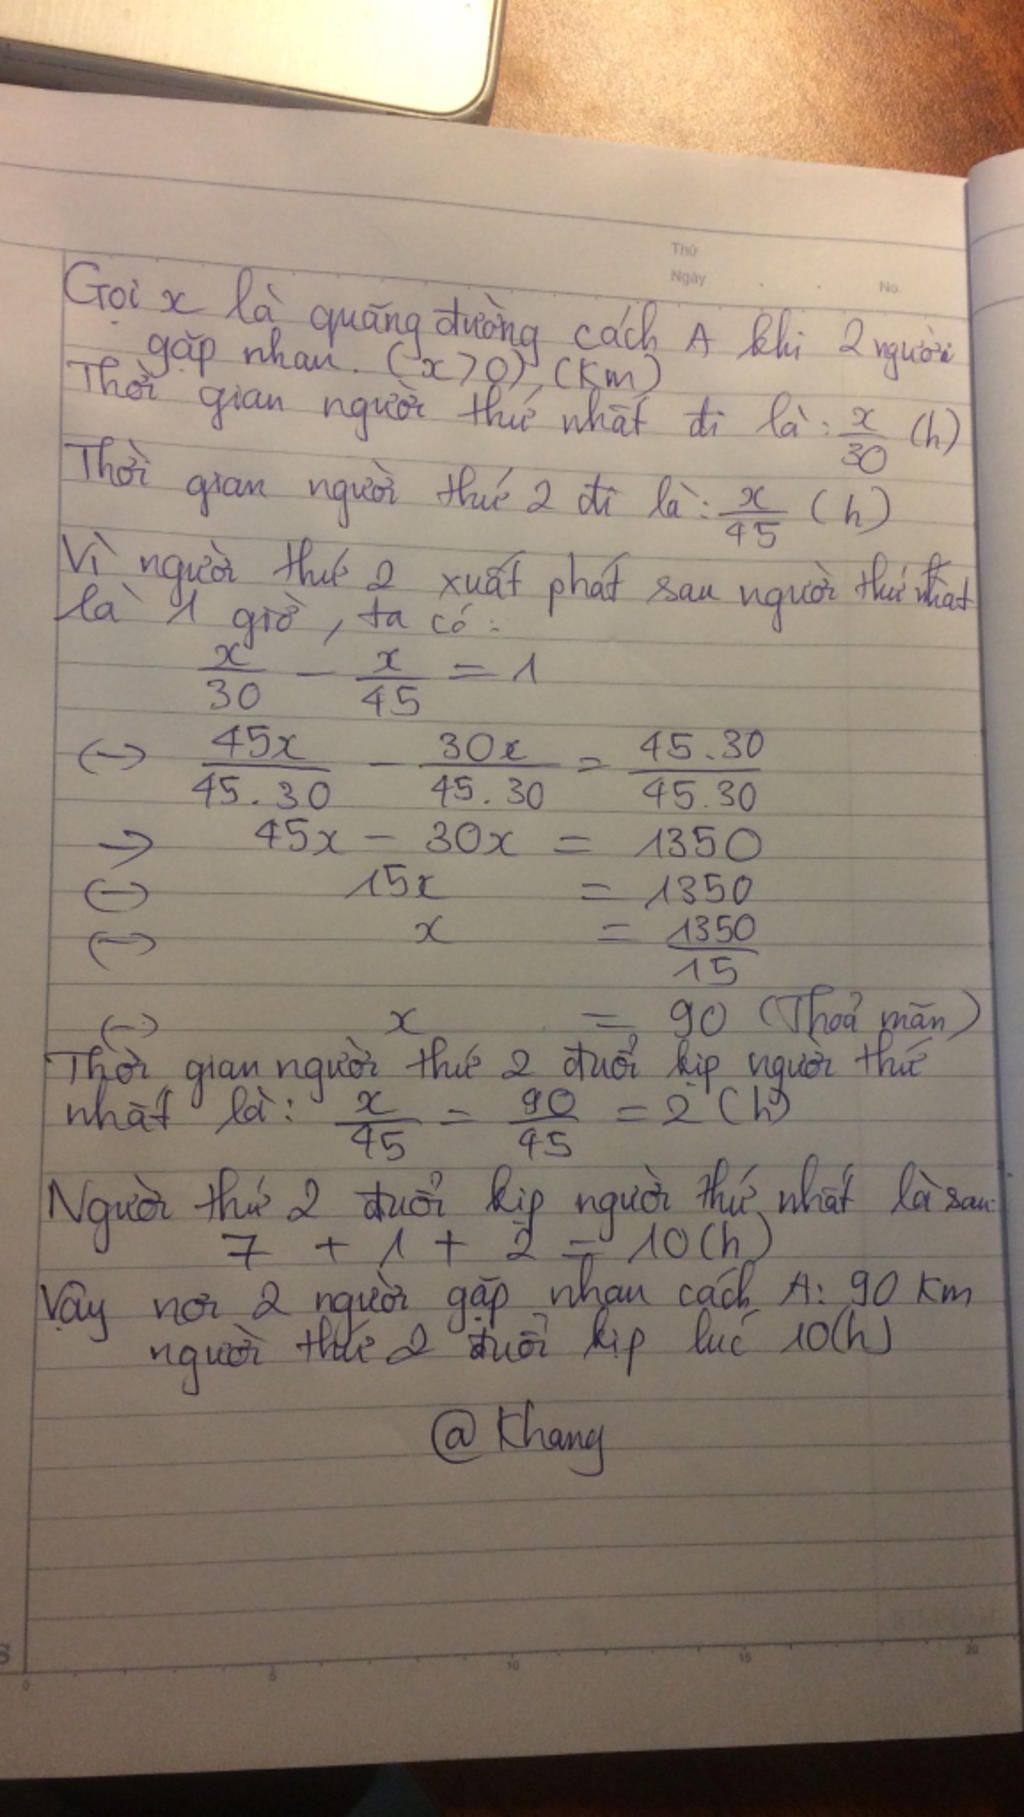 Thứ
Ngày
No.
Gọi x là quãng đường cách A khi 2 người
gặp nhau. (x>0), (Km)
Thời gian người thứ nhất đi là: x/30 (h)
Thời gian người thứ 2 đi là: x/45 (h)
Vì người thứ 2 xuất phát sau người thứ nhất
là 1 giờ, ta có:
x/30 - x/45 = 1
<-> 45x/45.30 - 30x/45.30 = 45.30/45.30
-> 45x - 30x = 1350
<-> 15x = 1350
<-> x = 1350/15
<-> x = 90 (Thoả mãn)
Thời gian người thứ 2 đuổi kịp người thứ
nhất là: x/45 = 90/45 = 2 (h)
Người thứ 2 đuổi kịp người thứ nhất là sau:
7 + 1 + 2 = 10(h)
Vậy nơi 2 người gặp nhau cách A: 90 Km
người thứ 2 đuổi kịp lúc 10(h)
@ Khang
S
0 5 10 15 20